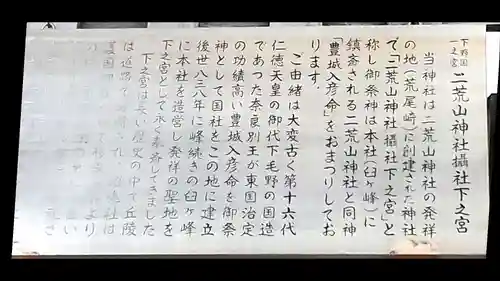 下野国
一之宮
二荒山神社攝社下之宮
当神社は二荒山神社の発祥
の地(荒尾崎)に創建された神社
で「二荒山神社攝社下之宮」と
称し御祭神は本社(臼ヶ峰)に
鎮斎される二荒山神社と同神
「豊城入彦命」をおまつりしてお
ります。
ご由緒は大変古く第十六代
仁徳天皇の御代下毛野の国造
であつた奈良別王が東国治定
の功績高い豊城入彦命を御祭
神として国社をこの地に建立
後世八三八年に峰続きの臼ヶ峰
に本社を造営し発祥の聖地を
下之宮として永く奉斎してきました
下之宮は長い歴史の中で丘陵
は道路で